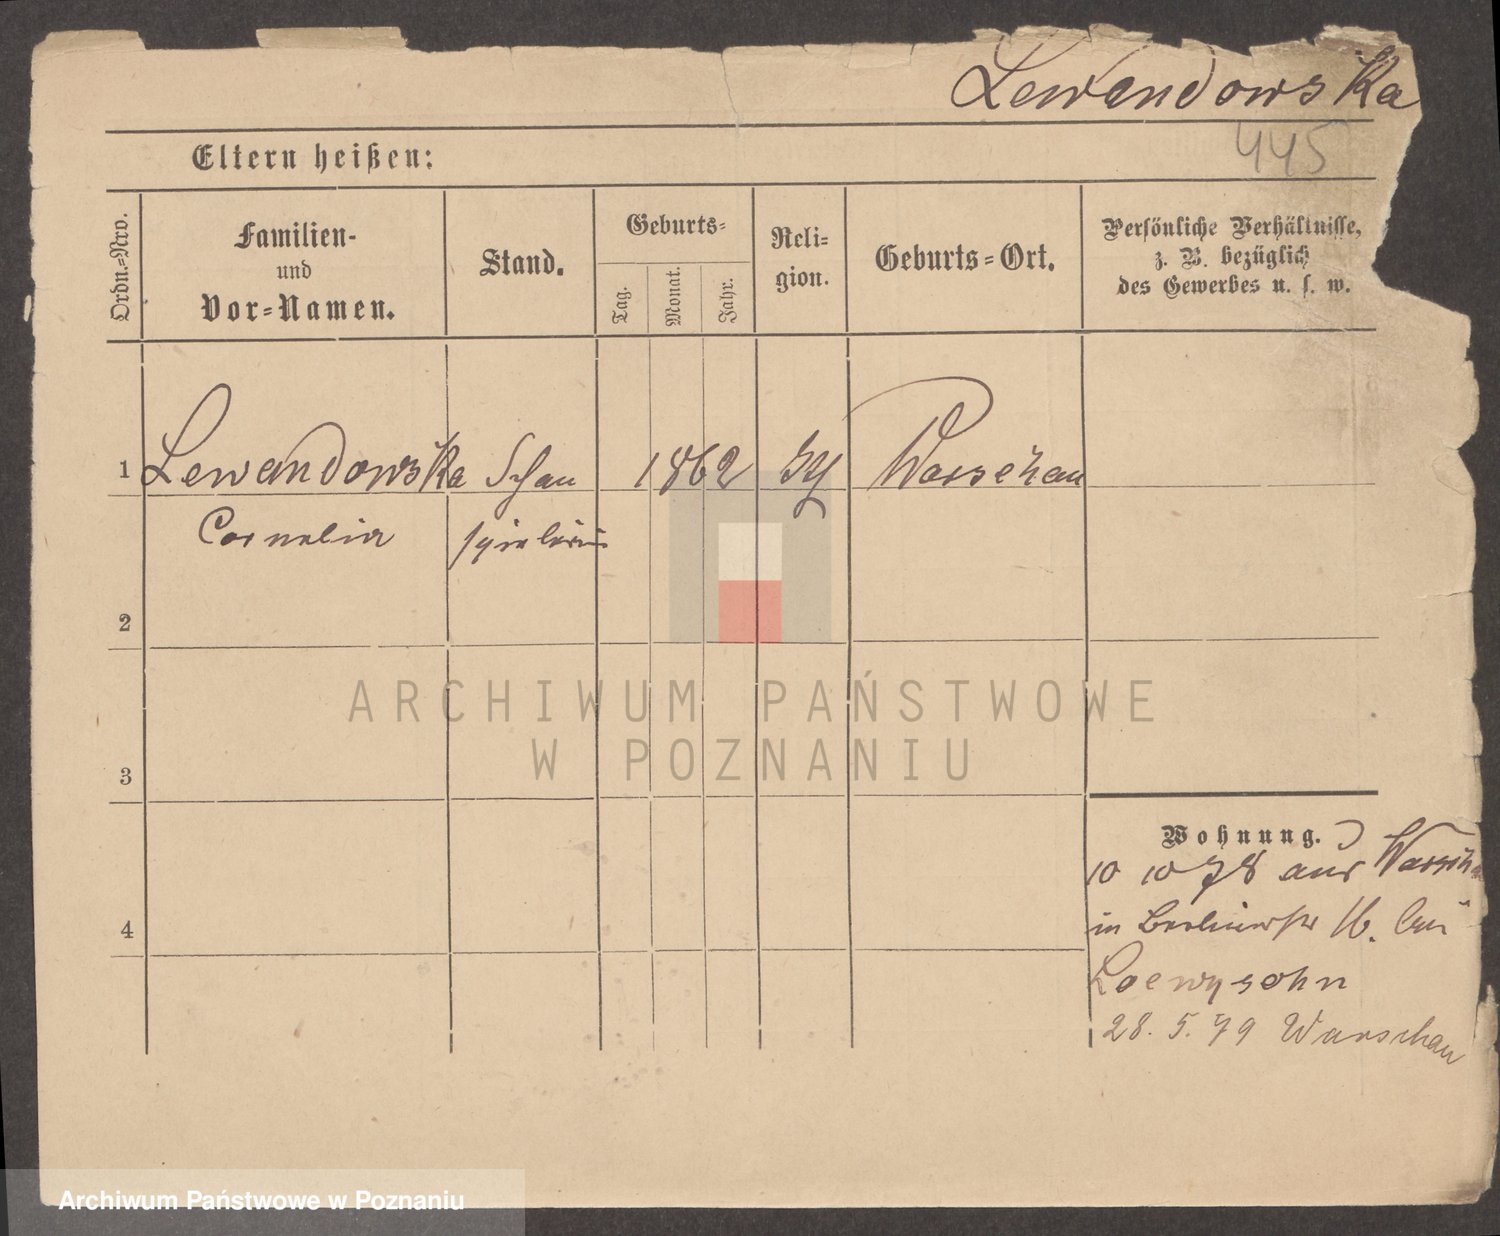 Lewandowska
445
Eltern heißen:
Ordn.=Nro.
Familien-
und
Vor=Namen.
Stand.
Geburts=
Tag.
Monat.
Jahr.
Reli=
gion.
Geburts=Ort.
Persönliche Verhältnisse,
z. B. bezüglich
des Gewerbes u. s. w.
1 Lewandowska Schau 1862 Warschau
Cornelia spielerin
2
3
4
ARCHIWUM PAŃSTWOWE
W POZNANIU
Wohnung.
10 10 78 aus Warschau
in Berlinerstr 16. bei
Loewysohn
28. 5. 79 Warschau
Archiwum Państwowe w Poznaniu